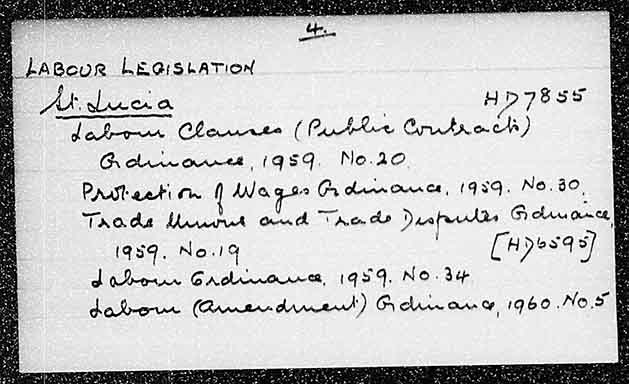 4.
LABOUR LEGISLATION
St. Lucia HD7855
Labour Clauses (Public Contracts)
Ordinance, 1959. No.20.
Protection of Wages Ordinance, 1959. No.30.
Trade Unions and Trade Disputes Ordinance,
1959. No.19 [HD6595]
Labour Ordinance, 1959. No.34
Labour (Amendment) Ordinance, 1960. No.5